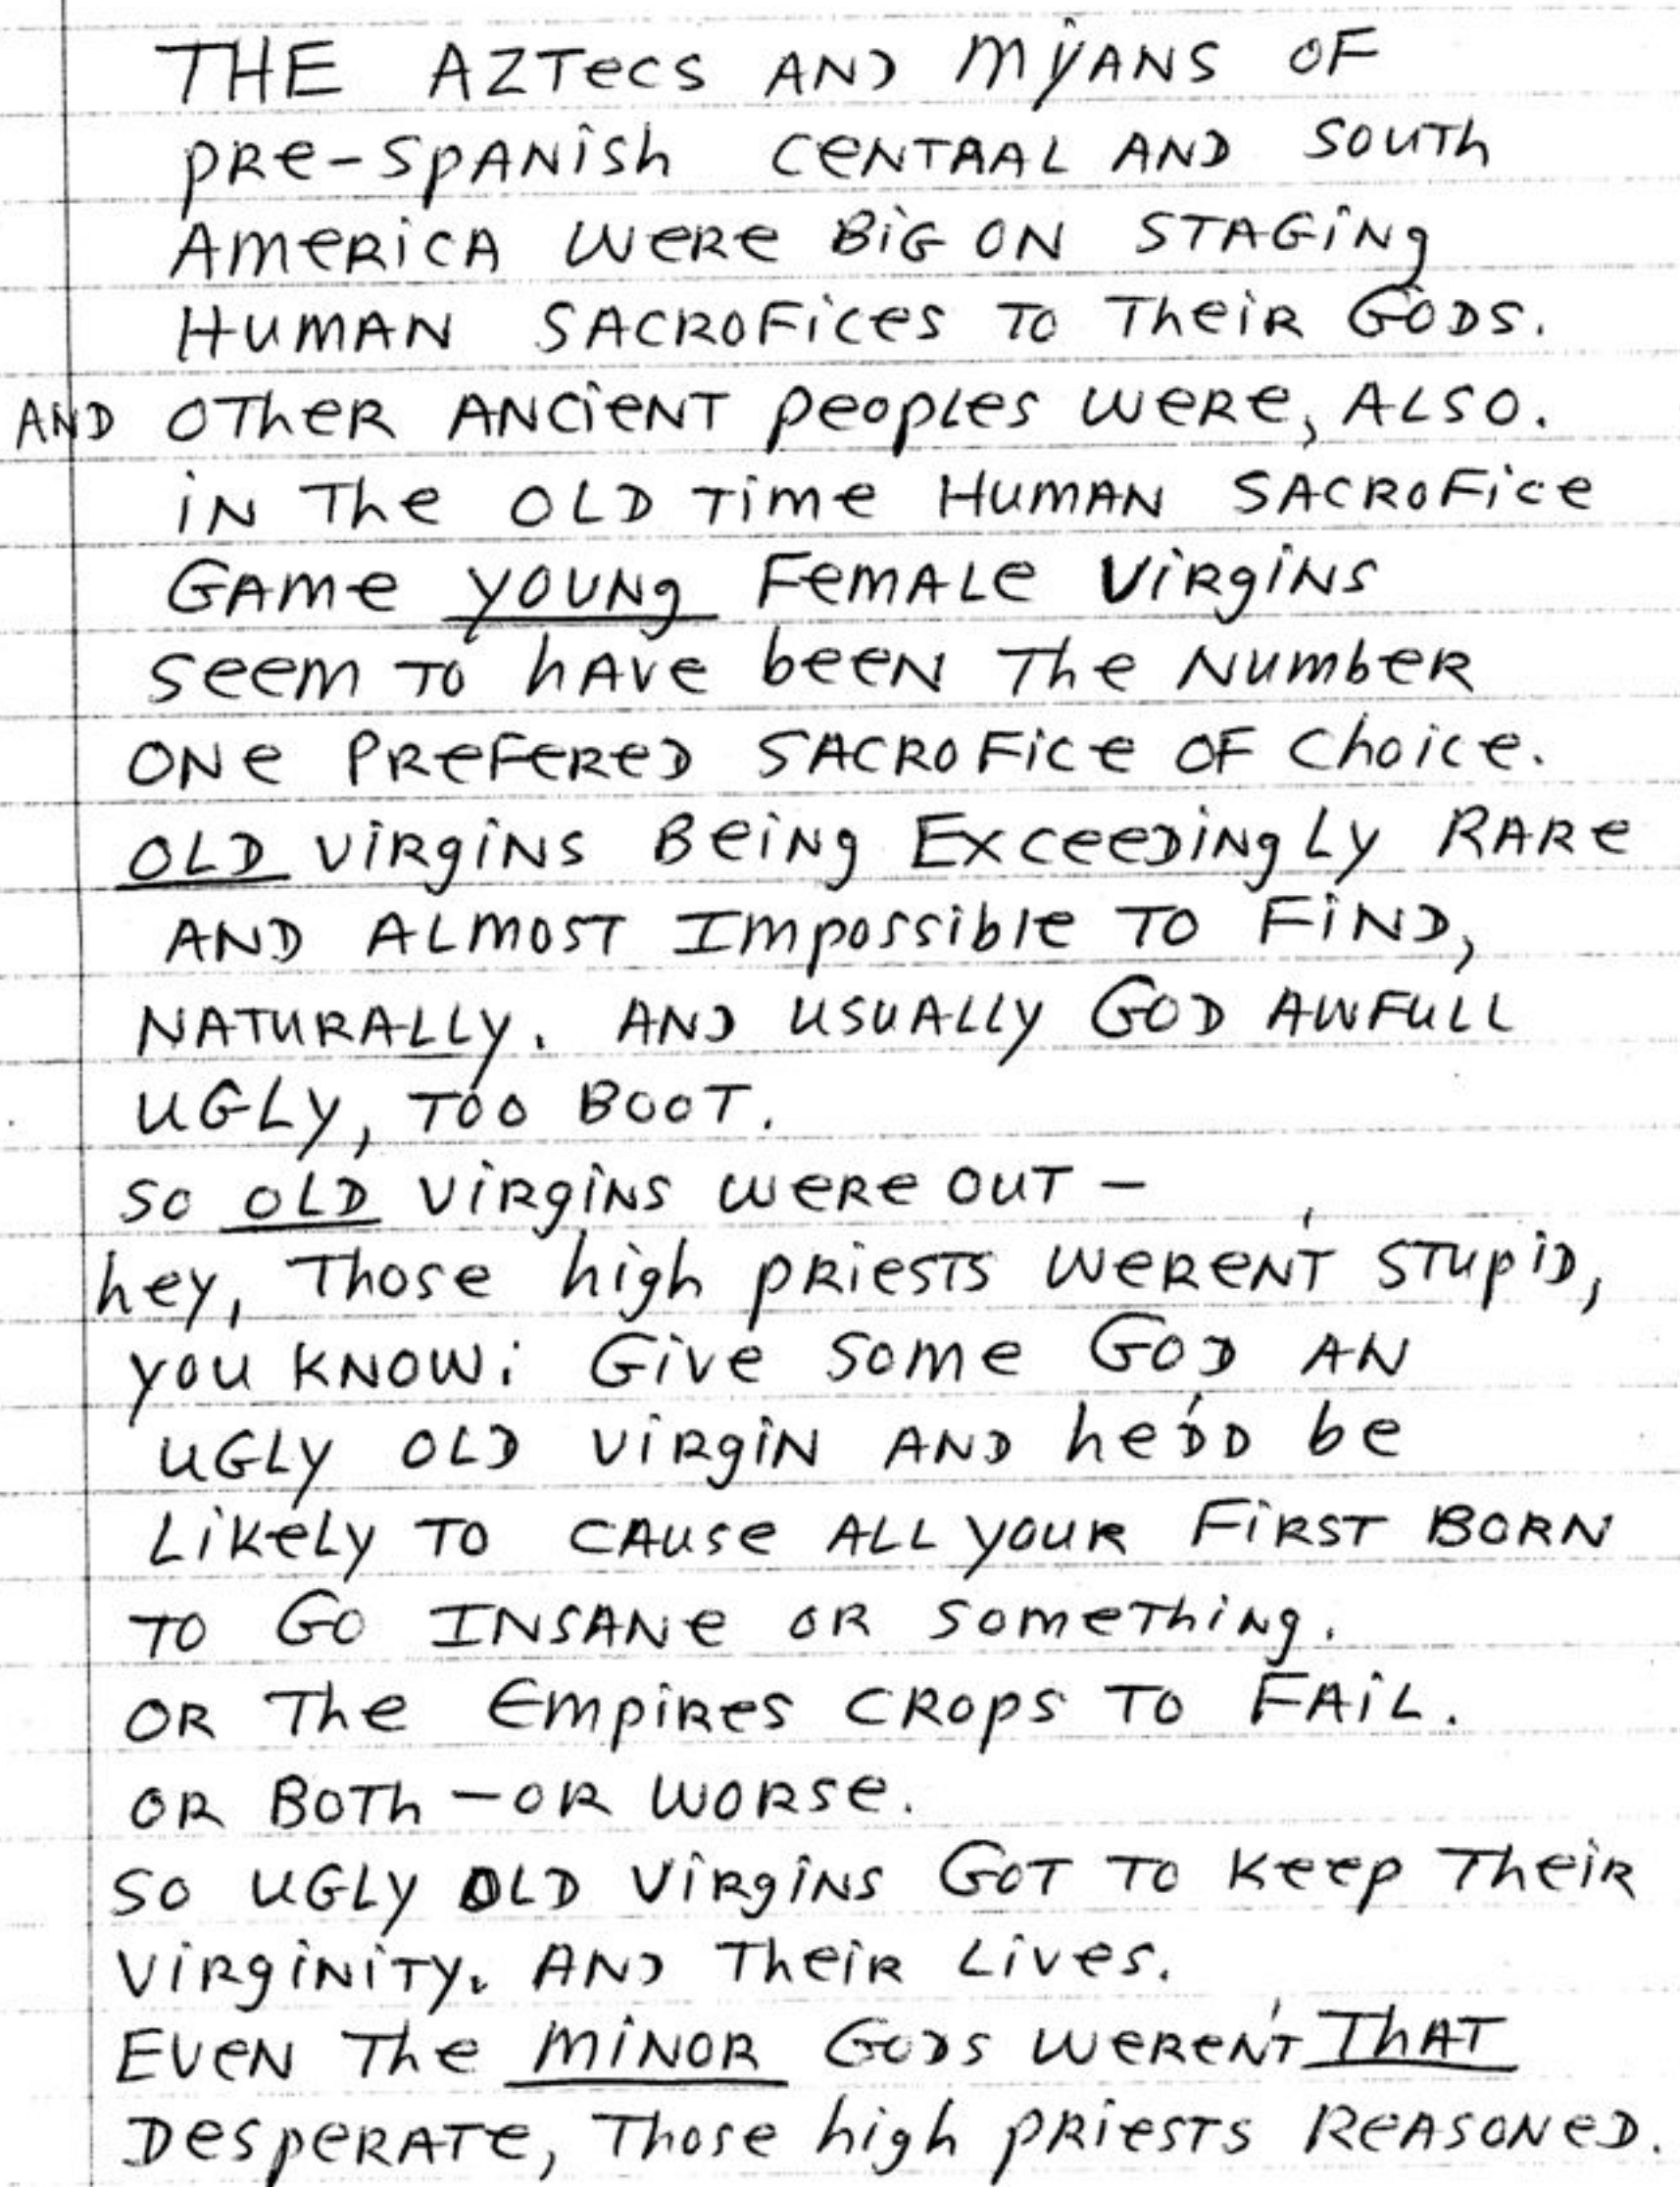 THE AZTecs AND MyANS OF
pRe-SpANish CeNTAAL AND SOUTh
AmeRicA WeRe BiG ON STAGiNg
HUMAN SACROFices TO TheiR GODS.
AND OTheR ANCieNT peopLes WeRe, ALSO.
iN The OLD Time HUMAN SACROFice
GAme yOUNg FemALe ViRgiNS
Seem TO hAVe beeN The NumbeR
ONe PReFeReD SACROFice OF Choice.
OLD ViRgiNS BeiNg ExceeDiNgLy RARe
AND ALmOST Impossible TO FiND,
NATURALLy. AND USUALLy GOD AWFULL
UGLy, TOO BOOT.
SO OLD ViRgiNS WeRe OUT -
hey, Those high pRiesTS WeReN'T STupiD,
you KNOW: Give Some GOD AN
UGLy OLD ViRgiN AND he'DD be
LikeLy TO CAUse ALL yOUR FiRST BORN
TO GO INSANe OR SomeThiNg.
OR The EmpiRes CROpS TO FAiL.
OR BOTh - OR WORSe.
SO UGLy OLD ViRgiNS GOT TO Keep TheiR
ViRgiNiTy. AND TheiR Lives.
EveN The MiNOR GODS WeReN'T ThAT
DespeRATe, Those high pRiesTS ReASONeD.